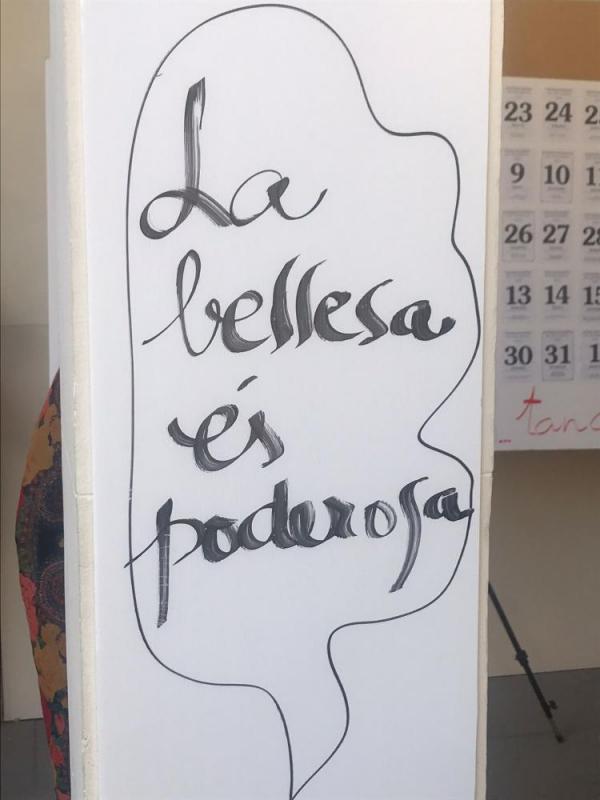 La
bellesa
és
poderosa
23 24
9 10
26 27 28
13 14 15
30 31 1
tanc